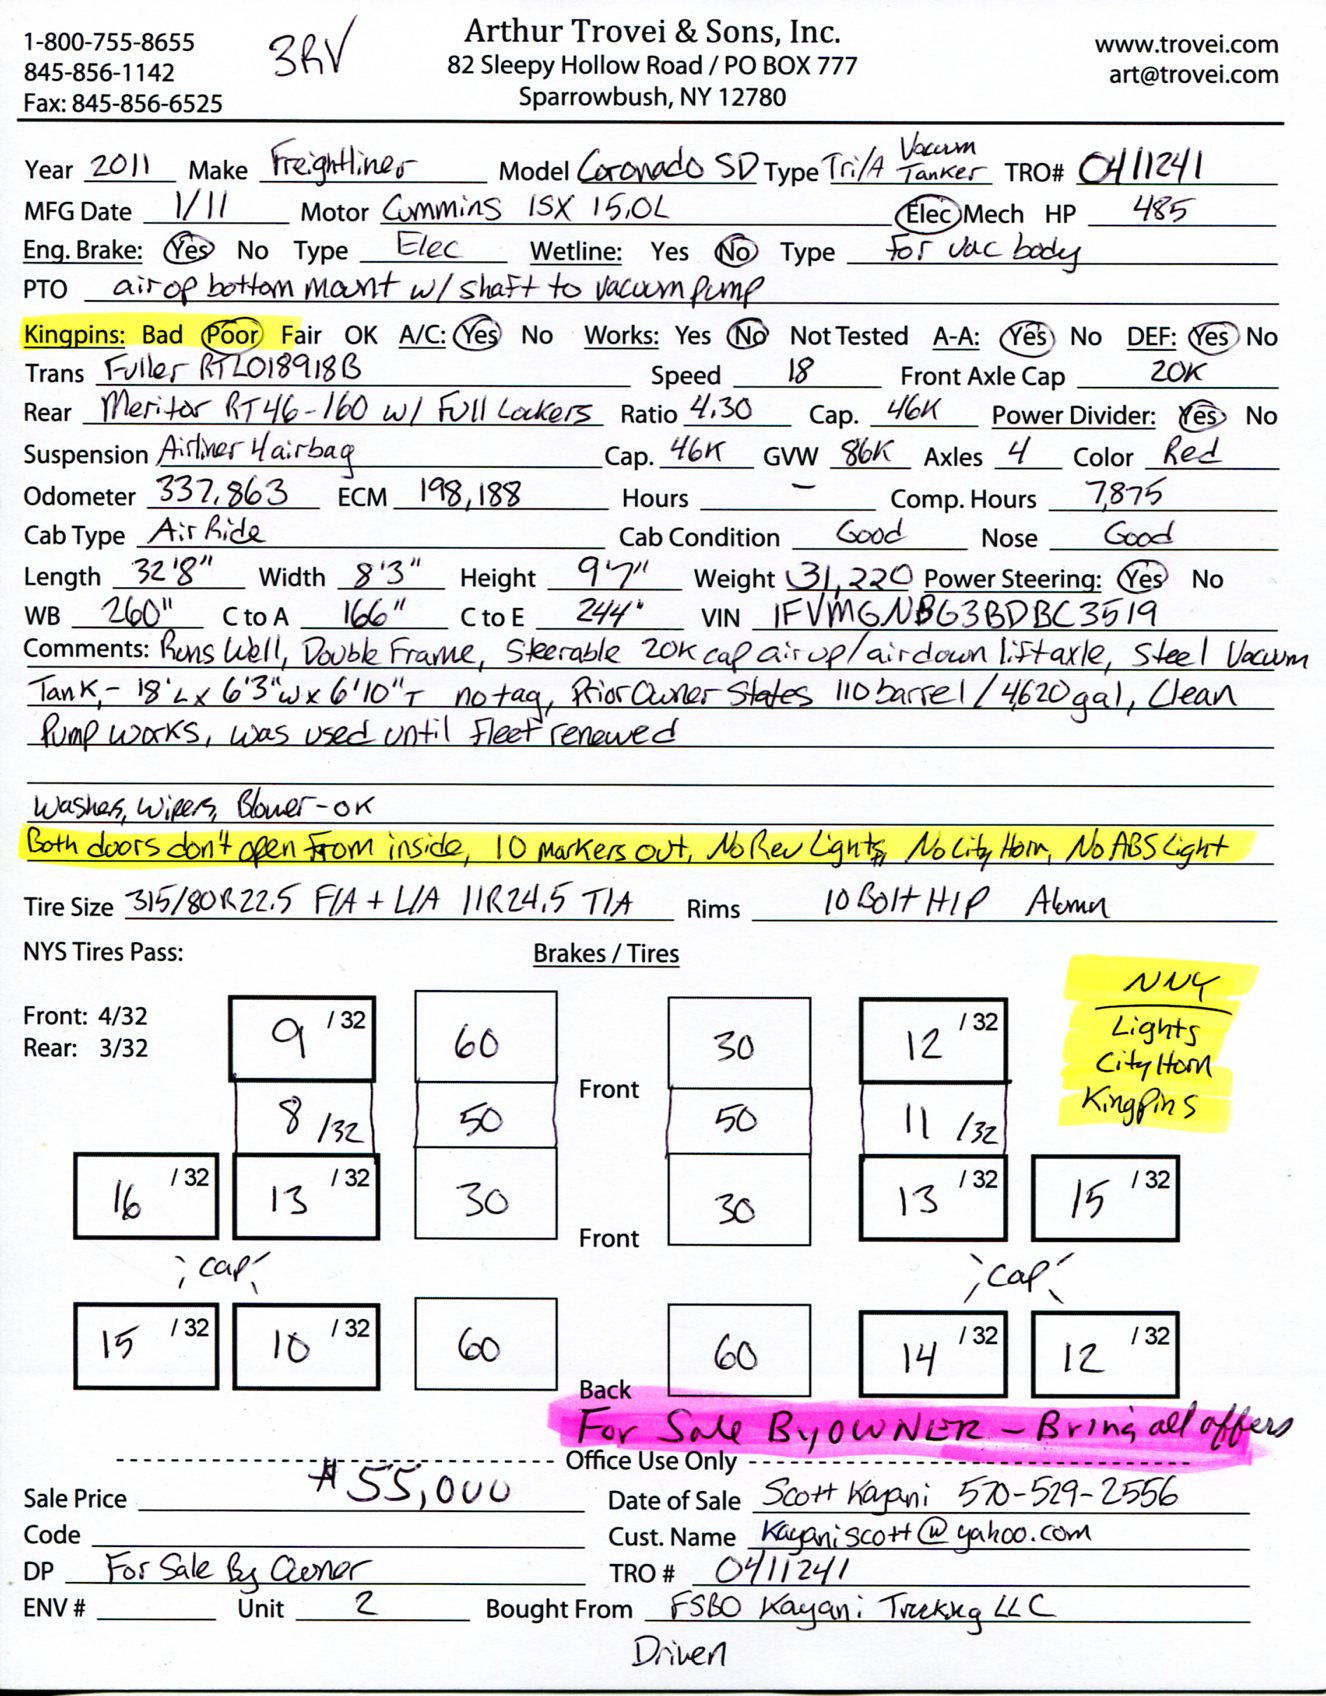 1-800-755-8655
845-856-1142
Fax: 845-856-6525
3RV
Arthur Trovei & Sons, Inc.
82 Sleepy Hollow Road / PO BOX 777
Sparrowbush, NY 12780
www.trovei.com
art@trovei.com
Year 2011 Make Freightliner Model Coronado SD Type Tri/A Vacuum Tanker TRO# 0411241
MFG Date 1/11 Motor Cummins ISX 15.0L Elec Mech HP 485
Eng. Brake: Yes No Type Elec Wetline: Yes No Type For vac body
PTO air op bottom mount w/ shaft to vacuum pump
Kingpins: Bad Poor Fair OK A/C: Yes No Works: Yes No Not Tested A-A: Yes No DEF: Yes No
Trans Fuller RTLO18918B Speed 18 Front Axle Cap 20K
Rear Meritor RT46-160 w/ Full Lockers Ratio 4.30 Cap. 46K Power Divider: Yes No
Suspension Airliner 4 airbag Cap. 46K GVW 86K Axles 4 Color Red
Odometer 337,863 ECM 198,188 Hours - Comp. Hours 7,875
Cab Type Air Ride Cab Condition Good Nose Good
Length 32'8" Width 8'3" Height 9'7" Weight 31,220 Power Steering: Yes No
WB 260" C to A 166" C to E 244" VIN 1FVMGNBG3BDBC3519
Comments: Runs Well, Double Frame, Steerable 20K cap air up/air down liftaxle, Steel Vacuum
Tank,- 18'L x 6'3"W x 6'10"T no tag, Prior Owner States 110 barrel/4,620 gal, Clean
Pump works, was used until fleet renewed
Washers, Wipers, Blower-OK
Both doors don't open From inside, 10 markers out, No Rev Lights, No City Horn, No ABS Light
Tire Size 315/80R22.5 F/A + L/A 11R24.5 T/A Rims 10 Bolt H/P Alumn
NYS Tires Pass: Brakes / Tires
Front: 4/32
Rear: 3/32
NNY
Lights
City Horn
Kingpins
9 /32 60 30 12 /32
Front
8 /32 50 50 11 /32
16 /32 13 /32 30 30 13 /32 15 /32
Front
cap cap
15 /32 10 /32 60 60 14 /32 12 /32
Back
For Sale By OWNER - Bring all offers
Office Use Only
Sale Price $55,000 Date of Sale Scott Kayani 570-529-2556
Code Cust. Name Kayaniscott@yahoo.com
DP For Sale By Owner TRO # 0411241
ENV # Unit 2 Bought From FSBO Kayani Trucking LLC
Driven